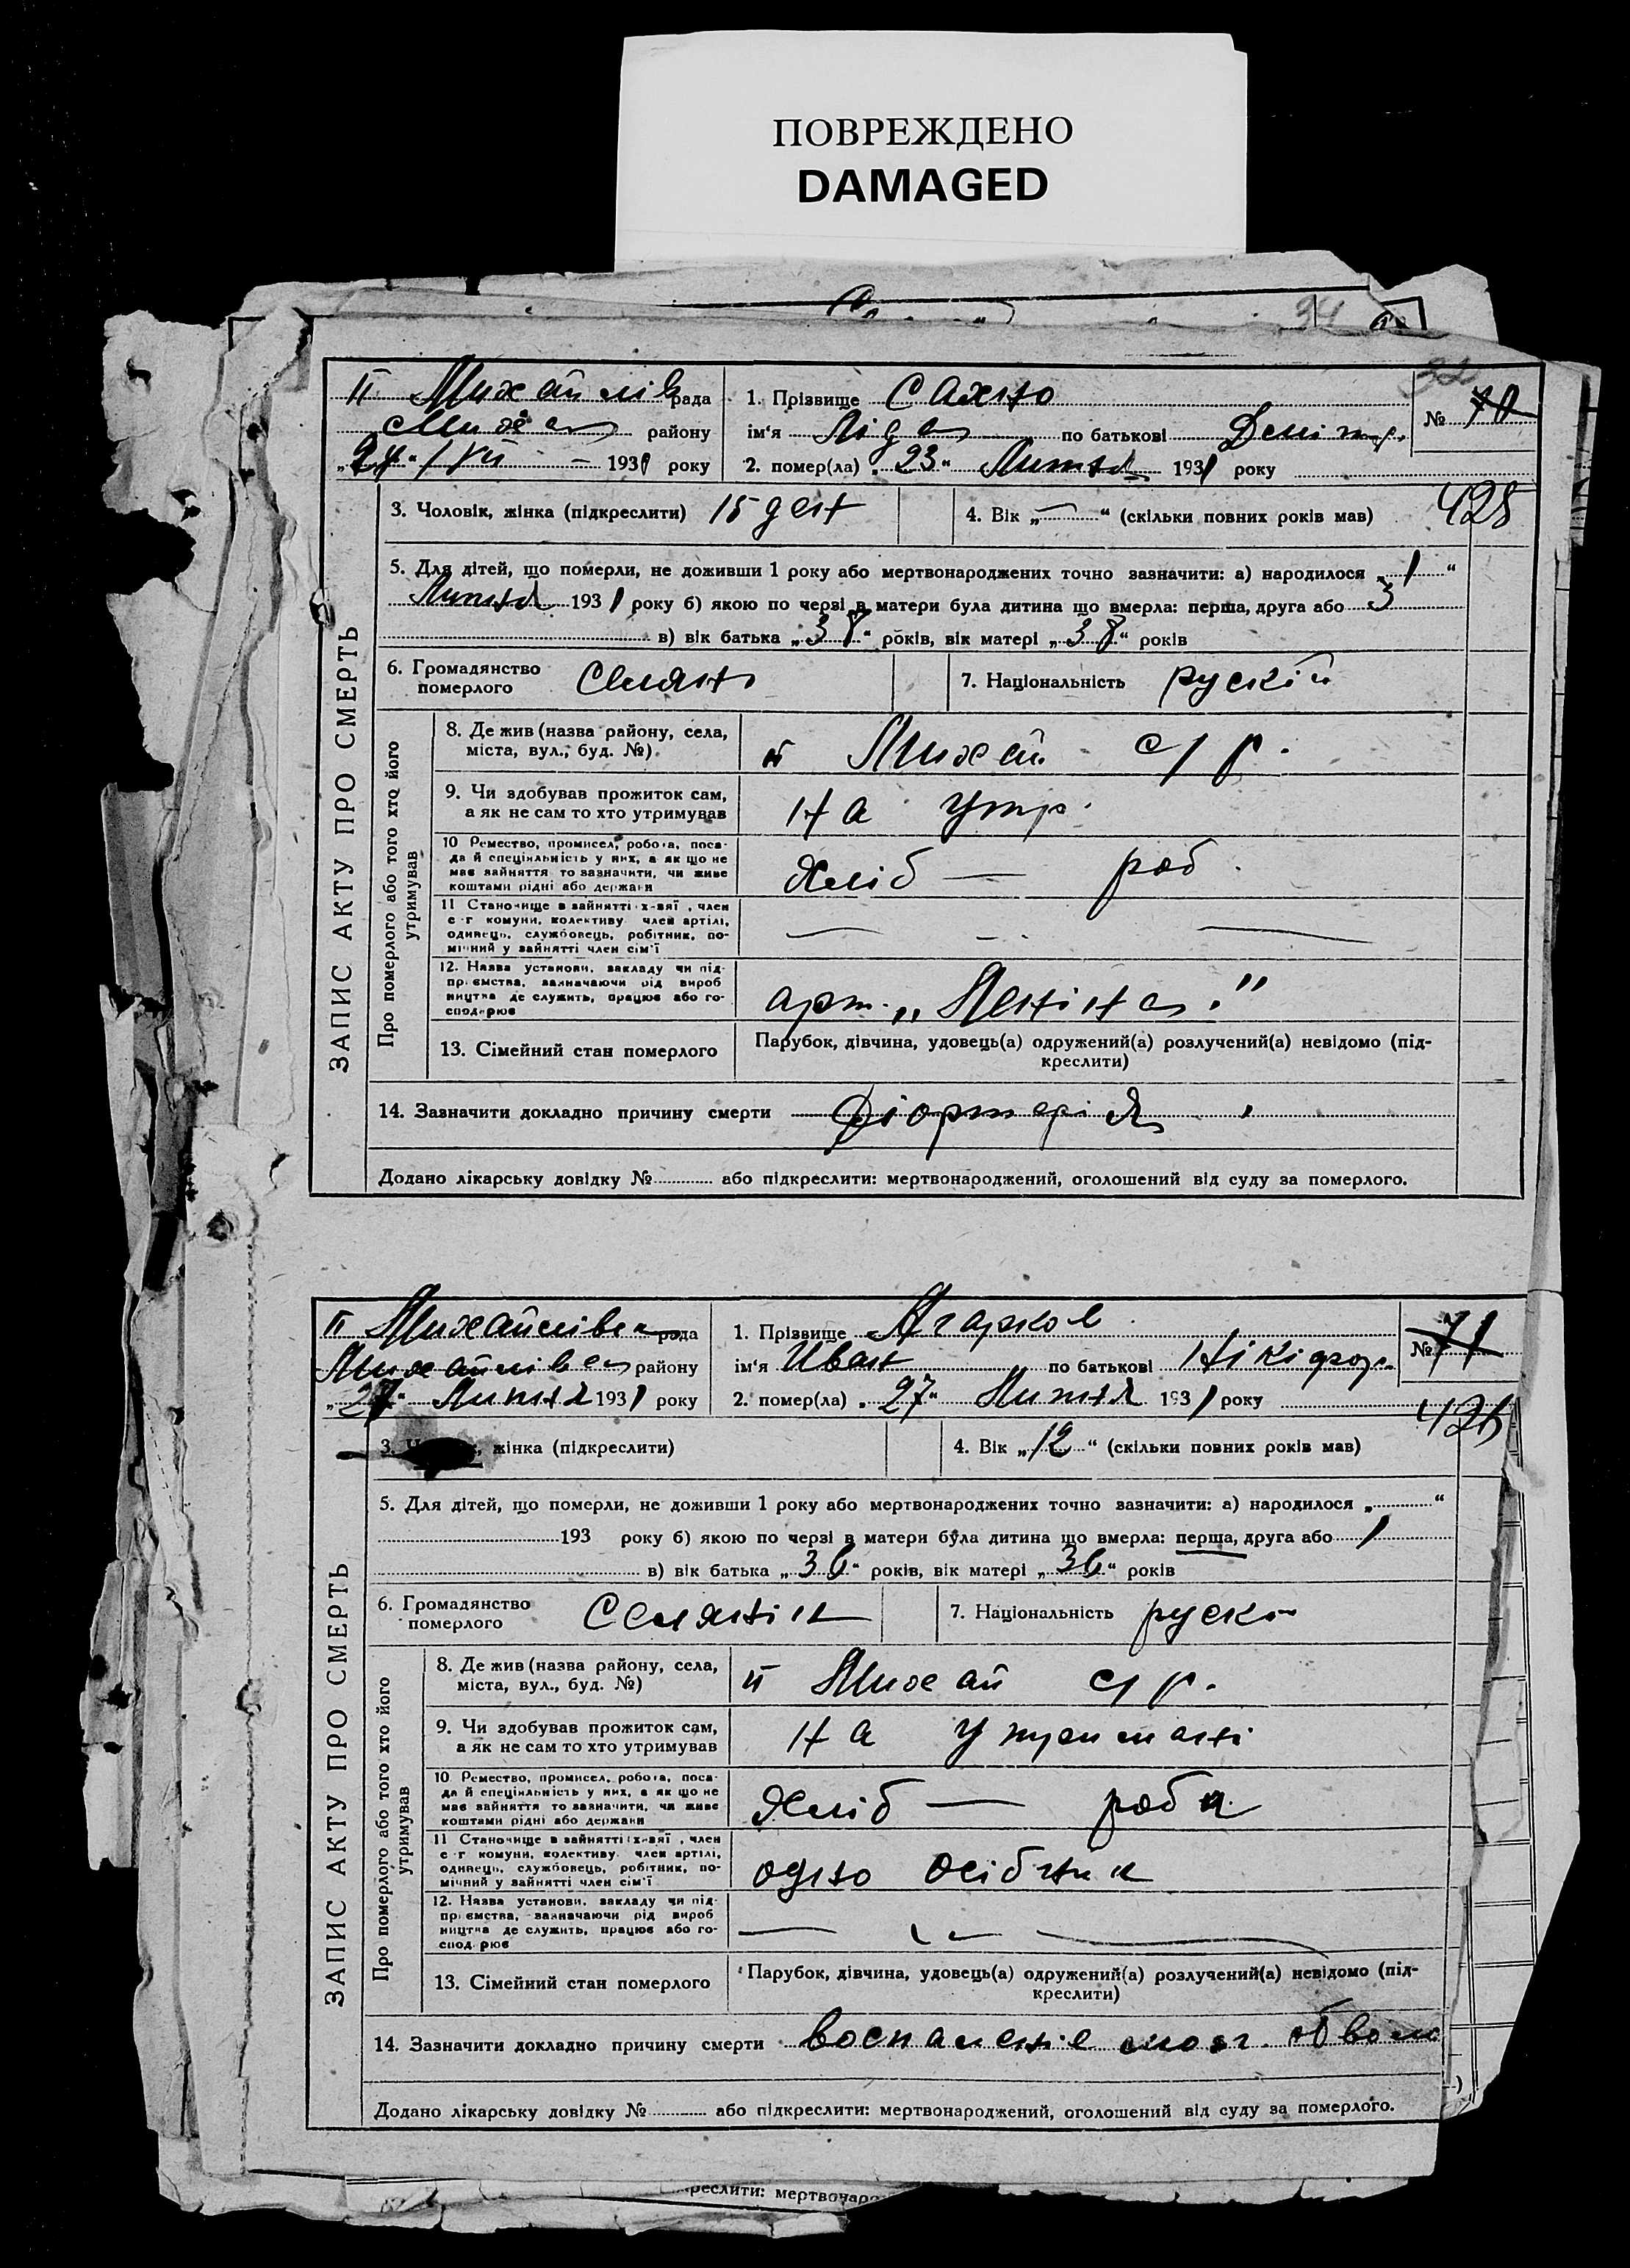 ПОВРЕЖДЕНО
DAMAGED
34
32
II Михайлів рада
Михай району
1931 року
1. Прізвище Сахно
ім'я Ліда по батькові Дміт
2. помер(ла) „23“ Липня 1931 року
№ 70
428
3. Чоловік, жінка (підкреслити) 15 ден
4. Вік „—“ (скільки повних років мав)
5. Для дітей, що померли, не доживши 1 року або мертвонароджених точно зазначити: а) народилося „1“
Липня 1931 року б) якою по черзі в матери була дитина що вмерла: перша, друга або 3
в) вік батька „38“ років, вік матері „38“ років
6. Громадянство
померлого Селян
7. Національність рускій
ЗАПИС АКТУ ПРО СМЕРТЬ
Про померлого або того хто його
утримував
8. Де жив (назва району, села,
міста, вул., буд. №)
II Михай с/р.
9. Чи здобував прожиток сам,
а як не сам то хто утримував
На утр.
10 Ремество, промисел, робота, поса-
да й спеціяльність у них, а як що не
має зайняття то зазначити, чи живе
коштами рідні або держави
Хліб — роб.
11 Становище в зайнятті х-вяї, член
с-г комуни, колективу член артілі,
одинець, службовець, робітник, по-
мічний у зайнятті член сім'ї
12. Назва установи, закладу чи під-
приємства, зазначаючи рід вироб
ництва де служить, працює або го-
сподарює
арт. „Леніна."
13. Сімейний стан померлого
Парубок, дівчина, удовець(а) одружений(а) розлучений(а) невідомо (під-
креслити)
14. Зазначити докладно причину смерти Діфтерія
Додано лікарську довідку № або підкреслити: мертвонароджений, оголошений від суду за померлого.
II Михайлівка рада
Михайлівка району
„27“ Липня 1931 року
1. Прізвище Агарков
ім'я Иван по батькові Нікіфор.
2. помер(ла) „27“ Липня 1931 року
№ 71
3. жінка (підкреслити)
4. Вік „12“ (скільки повних років мав)
5. Для дітей, що померли, не доживши 1 року або мертвонароджених точно зазначити: а) народилося „ “
193 року б) якою по черзі в матери була дитина що вмерла: перша, друга або 1
в) вік батька „36“ років, вік матері „36“ років
6. Громадянство
померлого Селянін
7. Національність рускій
ЗАПИС АКТУ ПРО СМЕРТЬ
Про померлого або того хто його
утримував
8. Де жив (назва району, села,
міста, вул., буд. №)
II Михай с/р.
9. Чи здобував прожиток сам,
а як не сам то хто утримував
На утриманні
10 Ремество, промисел, робота, поса-
да й спеціяльність у них, а як що не
має зайняття то зазначити, чи живе
коштами рідні або держави
Хліб — роба
11 Становище в зайнятті х-вяї, член
с-г комуни, колективу член артілі,
одинець, службовець, робітник, по-
мічний у зайнятті член сім'ї
одно осібник
12. Назва установи, закладу чи під-
приємства, зазначаючи рід вироб
ництва де служить, працює або го-
сподарює
13. Сімейний стан померлого
Парубок, дівчина, удовець(а) одружений(а) розлучений(а) невідомо (під-
креслити)
14. Зазначити докладно причину смерти воспаленіе мозг.
Додано лікарську довідку № або підкреслити: мертвонароджений, оголошений від суду за померлого.
реслити: мертвонаро